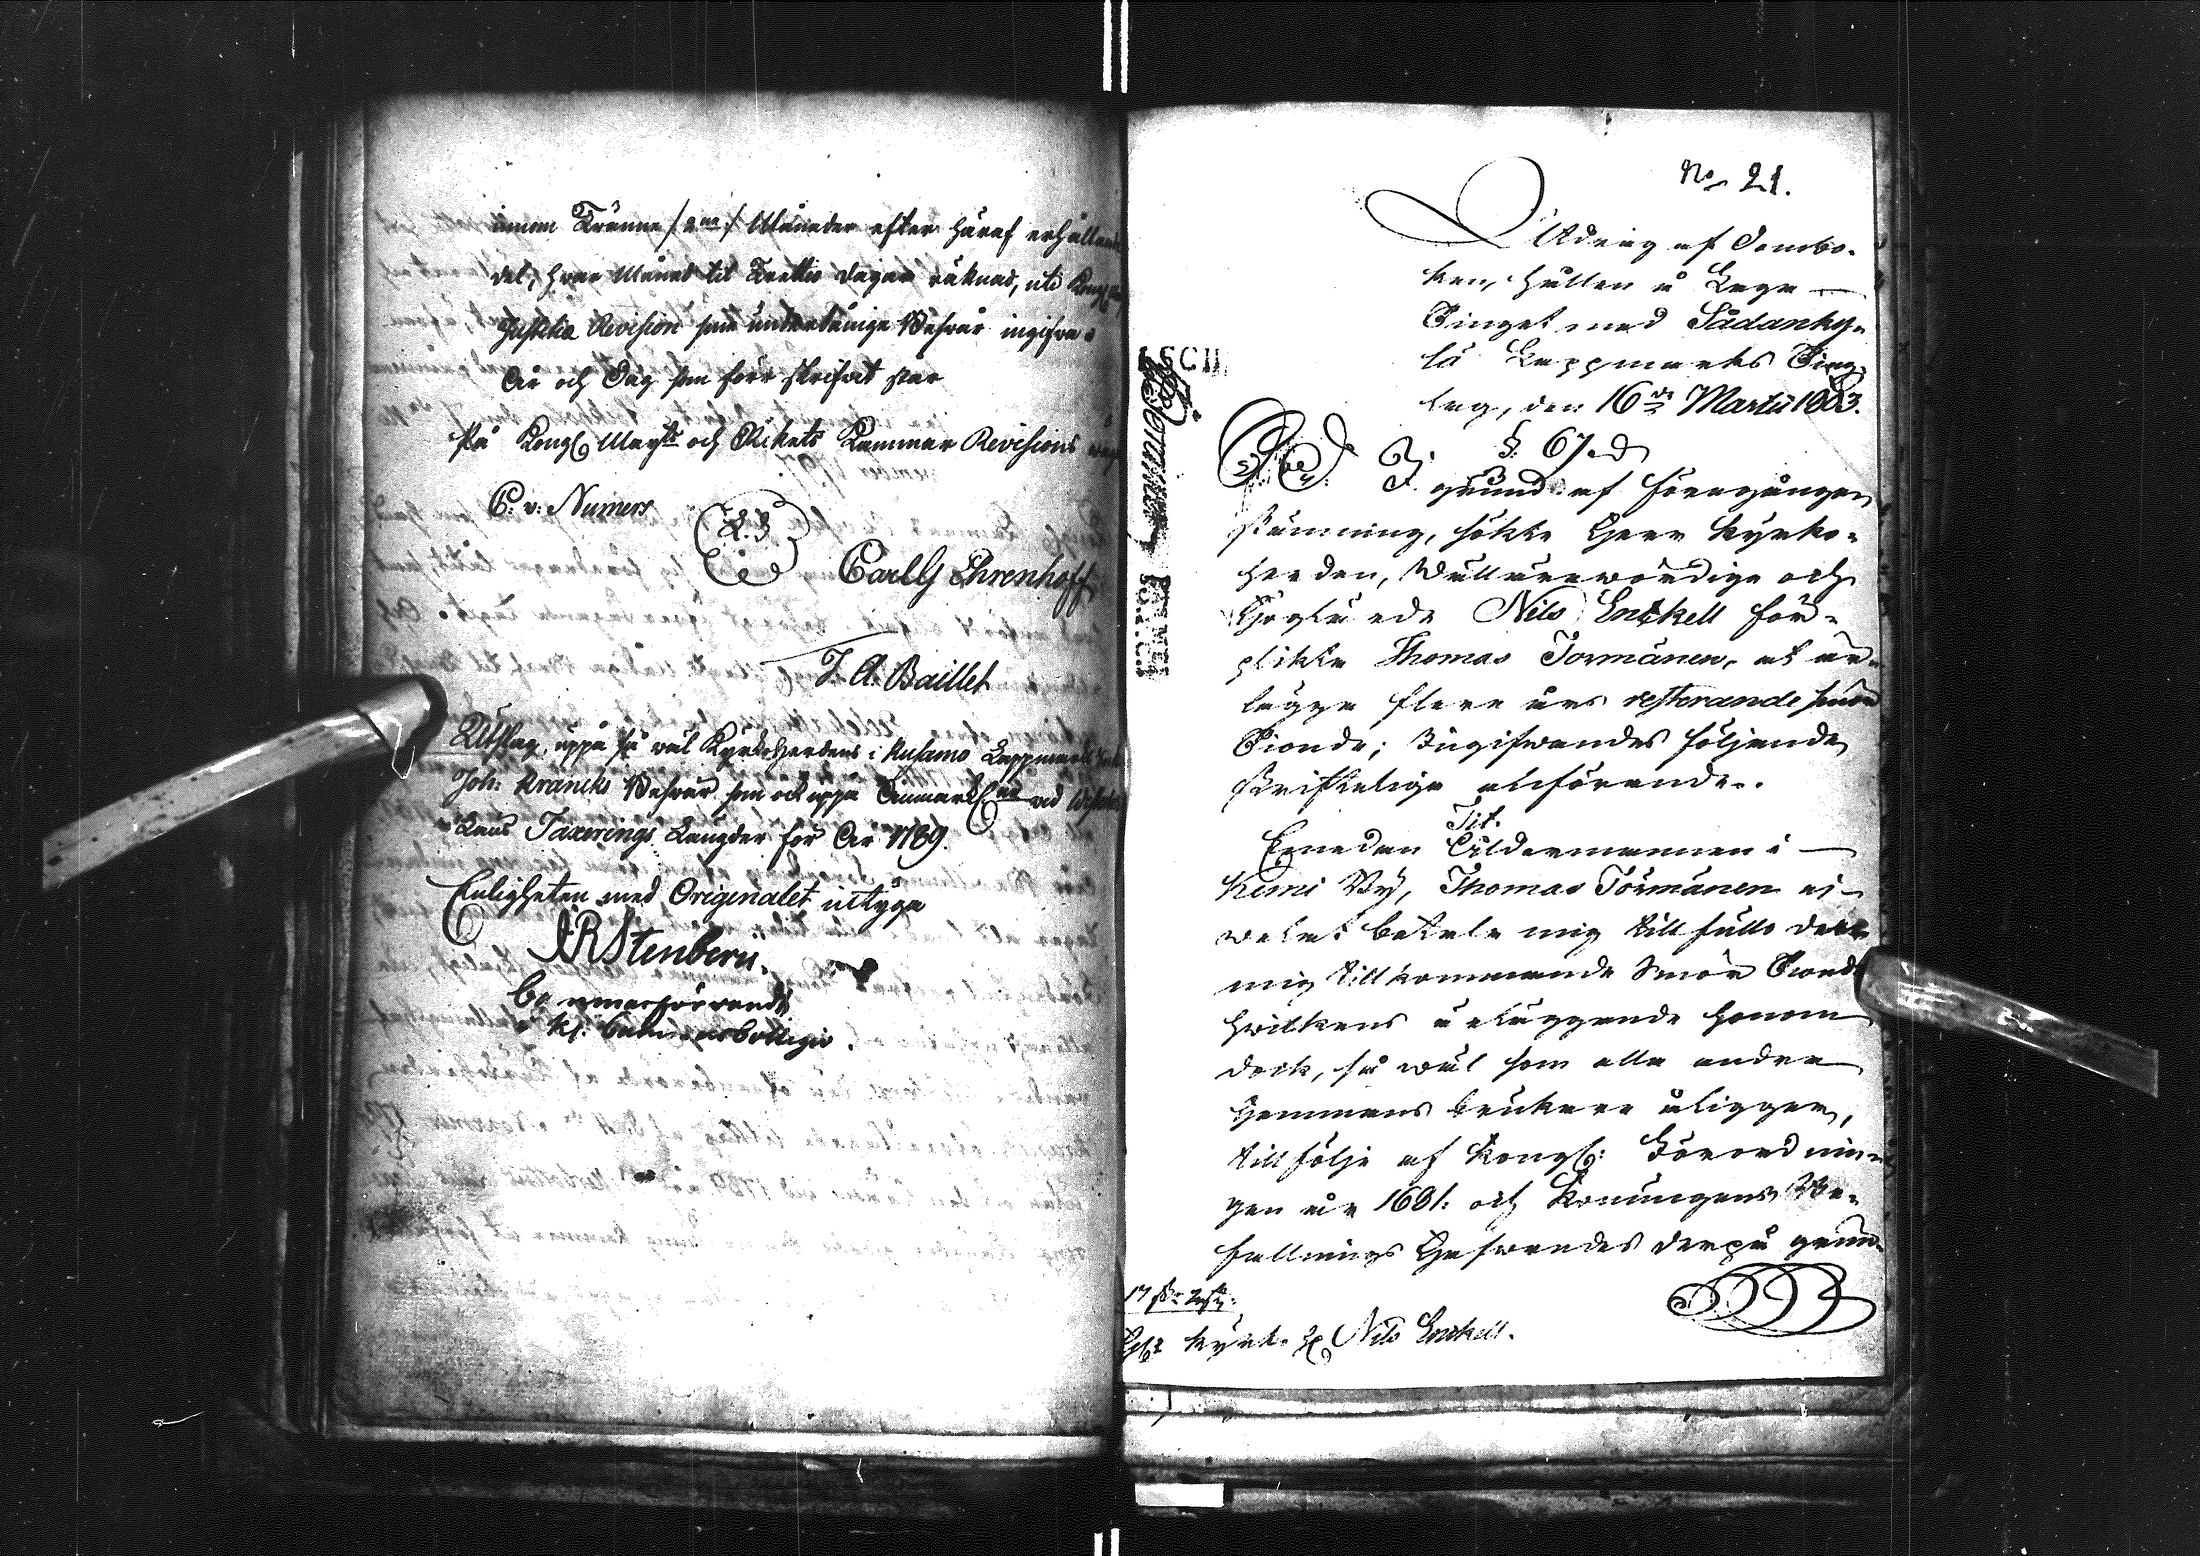 innom Trenne /:3ne:/ Månader efter häraf erhållen
del, hvar Månad til Trettio dagar räknad, uti Kongl
Justitiæ Revision sine underdånige Besvär ingifva.
År och Dag som förr skrifvit står
På Kongl Mayts och Rikets Kammar Revisions
C. v. Numers
L.S
Carl G Ehrenhoff
J. A. Baillet
Utslag, uppå så väl Kyrkoherdens i Kusamo Lappmark
Joh: Krancks Besvär som ock uppå vid
Taxerings Längder för År 1789.
Enligheten med Originalet intyga
No 21.
Utdrag af Dombo-
ken, hållen å Laga
Tinget med Sådanky-
lä Lappmarks Ting-
lag, den 16de Martii 1803.
§. 67.
I grund af föregången
stämning, sökte Herr Kyrko-
herden, Wällärevördige och
Höglärde Nils Enckell för-
plikta Thomas Tormänen, at är-
lägga flere års resterande smör
Tionde; Ingifvandes följande
skriftelige anförande.
Tit.
Emedan Åldermannen i
Kemi By, Thomas Törmänen ej
velat betala mig till fullo det
mig tillkommande Smör Tiond
hvilkens erläggande honom
dock, så väl som alla andra
Hemmans brukare åligger,
till följe af Kongl: Förordnin-
gen år 1681: och Konungens Be-
fallnings Hafvandes derpå grun-
Kyrk. H Nils Enckell.